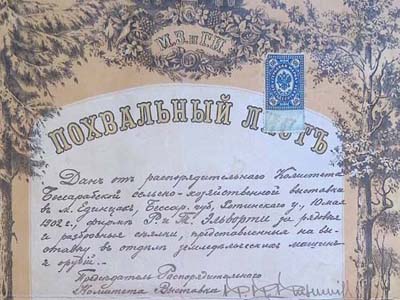 М.З. и Г.И.
ПОХВАЛЬНЫЙ ЛИСТЪ
Данъ отъ распорядительнаго Комитета
Бессарабской сельско-хозяйственной выставки
въ м. Единцахъ, Бессар. губ., Хотинскаго у., 10 мая
1902 г., фирмѣ Р. и Т. Эльворти за рядовыя
и разбросныя сѣялки, представленныя на вы-
ставку въ отдѣлъ земледѣльческихъ машинъ
и орудій.
Предсѣдатель Распорядительнаго
Комитета Выставки